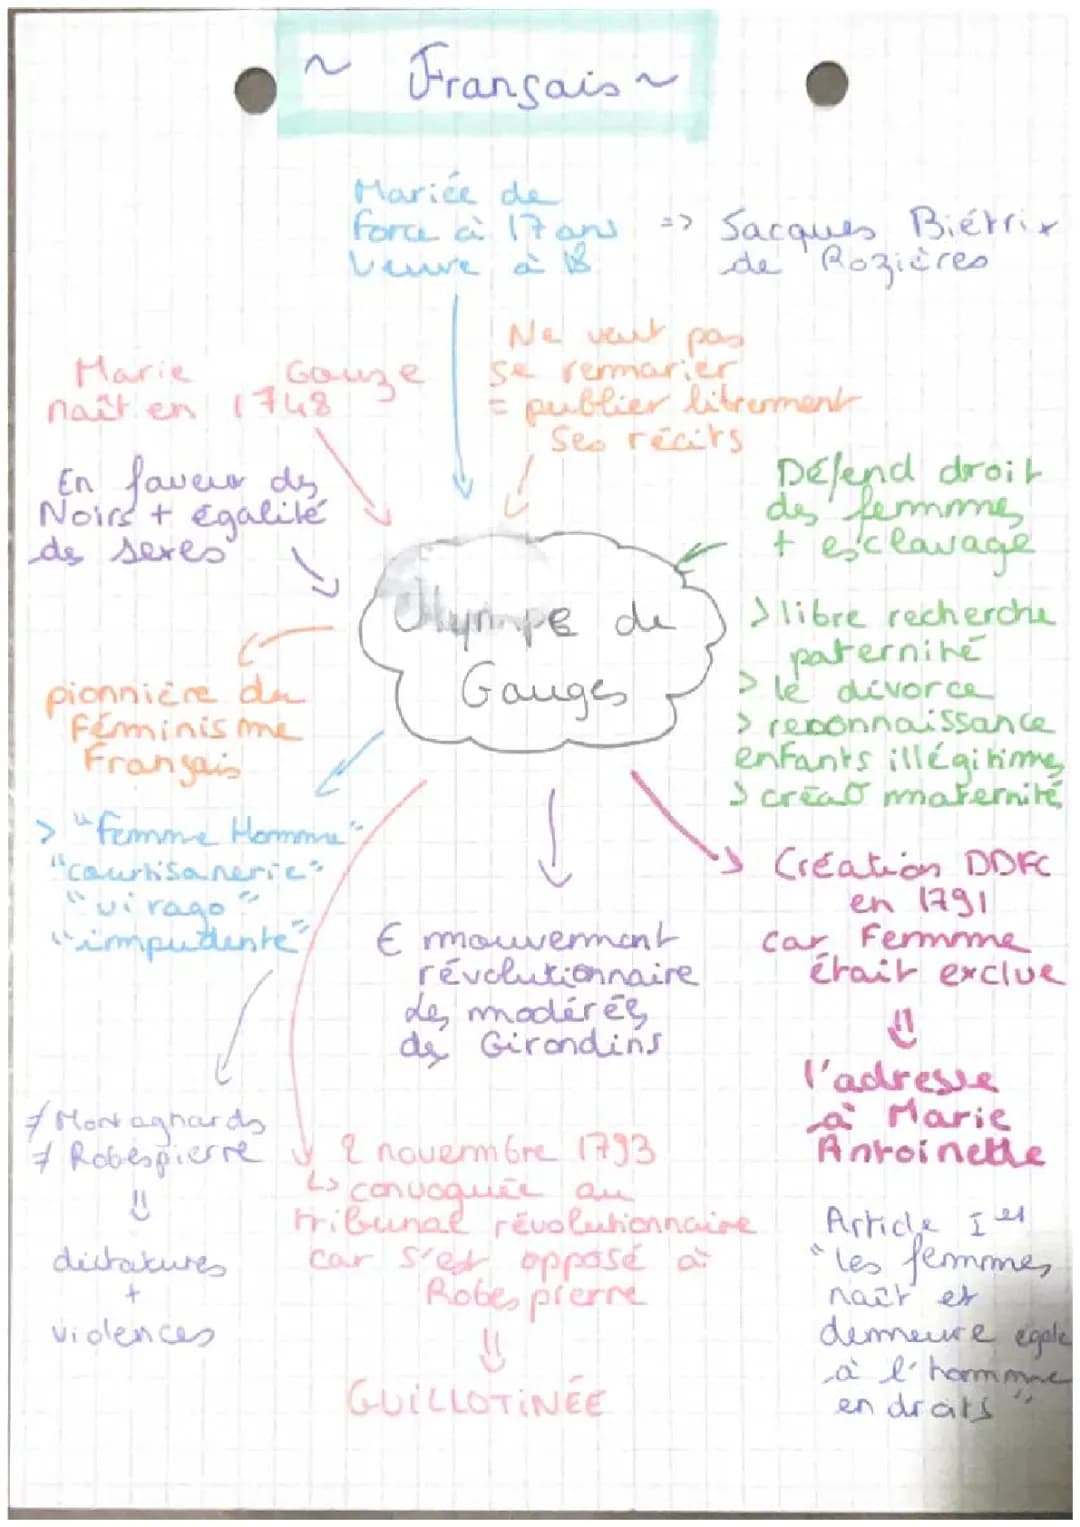 ~ Français ~
Mariée de
force à 17 ans
Veuve à 18
=> Jacques Biétrix
de Rozières
Ne veut pas
se remarier
= publier librement
ses récits
Marie Gouze
naît en 1748
En faveur des
Noirs + égalité
des sexes
Défend droit
des femmes
+ esclavage
> libre recherche
paternité
> le divorce
> reconnaissance
enfants illégitimes
> créat° maternité
Olympe de
Gouges
pionnière du
Féminisme
Français
> "Femme Homme"
"courtisanerie"
"virago"
"impudente"
≠ Montagnards
≠ Robespierre
⇓
dictatures
+
violences
∈ mouvement
révolutionnaire
des modérés
des Girondins
2 novembre 1793
↳ convoquée au
tribunal révolutionnaire
car s'est opposé à
Robespierre
⇓
GUILLOTINÉE
Création DDFC
en 1791
car Femme
était exclue
⇓
l'adresse
à Marie
Antoinette
Article Ier
"les femmes
naît et
demeure égale
à l'homme
en droits"